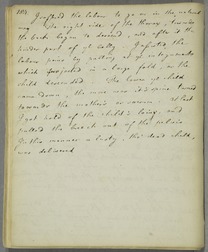 I suffered the labour to go on in the natural
way. The right side of the Uterus, towards
the back began to descend, and after it the
hinder part of it lastly. I assisted the
labour pains by pulling at the integuments
which projected in a large fold, as the
child descended. The lower the child
came down, the more was its spine turned
towards the mother's os sacrum; at last
I got hold of the child's loins, and
pulled the breech out of the pelvis.
In this manner a lusty, tho' dead child,
was delivered.